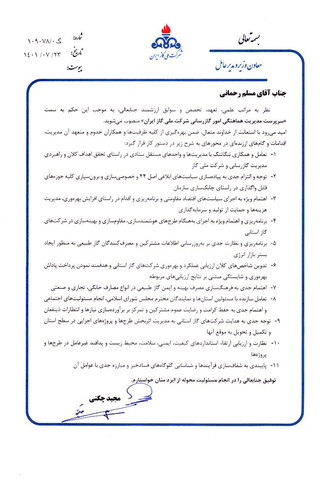 بسمه‌تعالی
شرکت ملی گاز ایران
معاون وزیر و مدیرعامل
شماره: گ/۱۰۹۰۷۸/۰
تاریخ: ۱۴۰۱/۰۷/۲۳
پیوست:
جناب آقای مسلم رحمانی
نظر به مراتب علمی، تعهد، تخصص و سوابق ارزشمند جنابعالی، به موجب این حکم به سمت
«سرپرست مدیریت هماهنگی امور گازرسانی شرکت ملی گاز ایران» منصوب می‌شوید.
امید می‌رود با استعانت از خداوند متعال، ضمن بهره‌گیری از کلیه ظرفیت‌ها و همکاران خدوم و متعهد آن مدیریت،
اقدامات و گام‌های ارزنده‌ای در محورهای به شرح زیر در دستور کار قرار گیرد:
۱- تعامل و همکاری تنگاتنگ با مدیریت‌ها و واحدهای مستقل ستادی در راستای تحقق اهداف کلان و راهبردی
مدیریت گازرسانی و شرکت ملی گاز
۲- توجه و التزام جدی به پیاده‌سازی سیاست‌های ابلاغی اصل ۴۴ و خصوصی‌سازی و برون‌سپاری کلیه حوزه‌های
قابل واگذاری در راستای چابک‌سازی سازمان
۳- اهتمام ویژه به اجرای سیاست‌های اقتصاد مقاومتی و برنامه‌ریزی و اقدام در راستای افزایش بهره‌وری، مدیریت
هزینه‌ها و حمایت از تولید و سرمایه‌گذاری.
۴- برنامه‌ریزی و اهتمام ویژه به اجرای به‌هنگام طرح‌های هوشمندسازی، مقاوم‌سازی و بهینه‌سازی در شرکت‌های
گاز استانی
۵- برنامه‌ریزی و نظارت جدی بر به‌روزرسانی اطلاعات مشترکین و مصرف‌کنندگان گاز طبیعی به منظور ایجاد
بستر بازار انرژی
۶- تدوین شاخص‌های کلان ارزیابی عملکرد و بهره‌وری شرکت‌های گاز استانی و هدفمند نمودن پرداخت پاداش
بهره‌وری و شایستگی مبتنی بر نتایج ارزیابی‌های مربوطه
۷- اهتمام جدی به فرهنگ‌سازی مصرف بهینه و ایمن گاز طبیعی در انواع مصارف خانگی، تجاری و صنعتی
۸- تعامل سازنده با مسئولین استان‌ها و نمایندگان محترم مجلس شورای اسلامی، انجام مسئولیت‌های اجتماعی
و اهتمام جدی به حفظ کرامت و رضایت عموم مشترکین و تمرکز بر برآورده‌سازی نیازها و انتظارات ذینفعان
۹- توجه جدی به هدایت شرکت‌های گاز استانی به مدیریت اثربخش طرح‌ها و پروژه‌های اجرایی در سطح استان
و تکمیل و تحویل به موقع آنها
۱۰- نظارت و ارزیابی ارتقاء استانداردهای کیفیت، ایمنی، سلامت، محیط زیست و پدافند غیرعامل در طرح‌ها و
پروژه‌ها
۱۱- پایبندی به شفاف‌سازی فرآیندها و شناسایی گلوگاه‌های فسادخیز و مبارزه جدی با عوامل آن
توفیق جنابعالی را در انجام مسئولیت محوله از ایزد منان خواستارم.
مجید چگنی